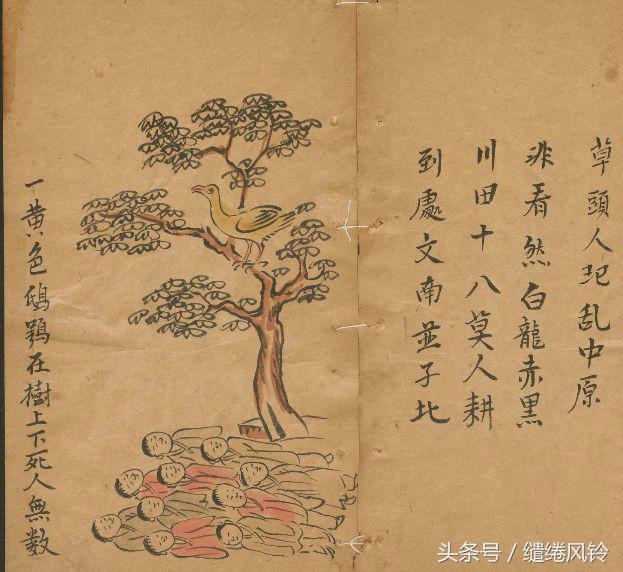 草頭人圯乱中原
非看然白龍赤黒
川田十八莫人耕
到處文南並子北
一黄色鴟鴞在樹上下死人無数
头条号 / 缱绻风铃